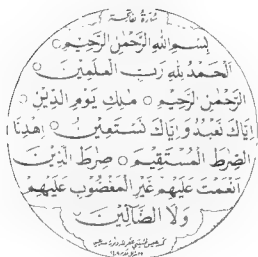 سورة فاتحة
بِسْمِ اللهِ الرَّحْمٰنِ الرَّحِيْمِ
اَلْحَمْدُ لِلّٰهِ رَبِّ الْعٰلَمِيْنَ
الرَّحْمٰنِ الرَّحِيْمِ ○ مٰلِكِ يَوْمِ الدِّيْنِ
اِيَّاكَ نَعْبُدُ وَاِيَّاكَ نَسْتَعِيْنُ ○ اِهْدِنَا
الصِّرَاطَ الْمُسْتَقِيْمَ ○ صِرَاطَ الَّذِيْنَ
اَنْعَمْتَ عَلَيْهِمْ غَيْرِ الْمَغْضُوْبِ عَلَيْهِمْ
وَلَا الضَّالِّيْنَ